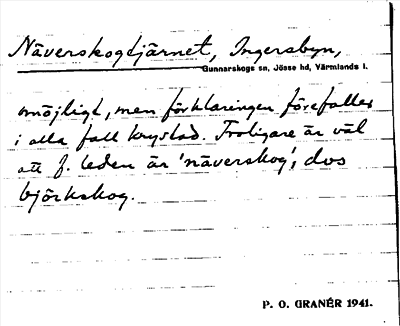 Näverskogstjärnet, Ingersbyn,
Gunnarskogs sn, Jösse hd, Värmlands l.
möjligt, men förklaringen förefaller
i alla fall krystad. Troligare är väl
att f. leden är 'näverskog', dvs
björkskog.
P. O. GRANÉR 1941.